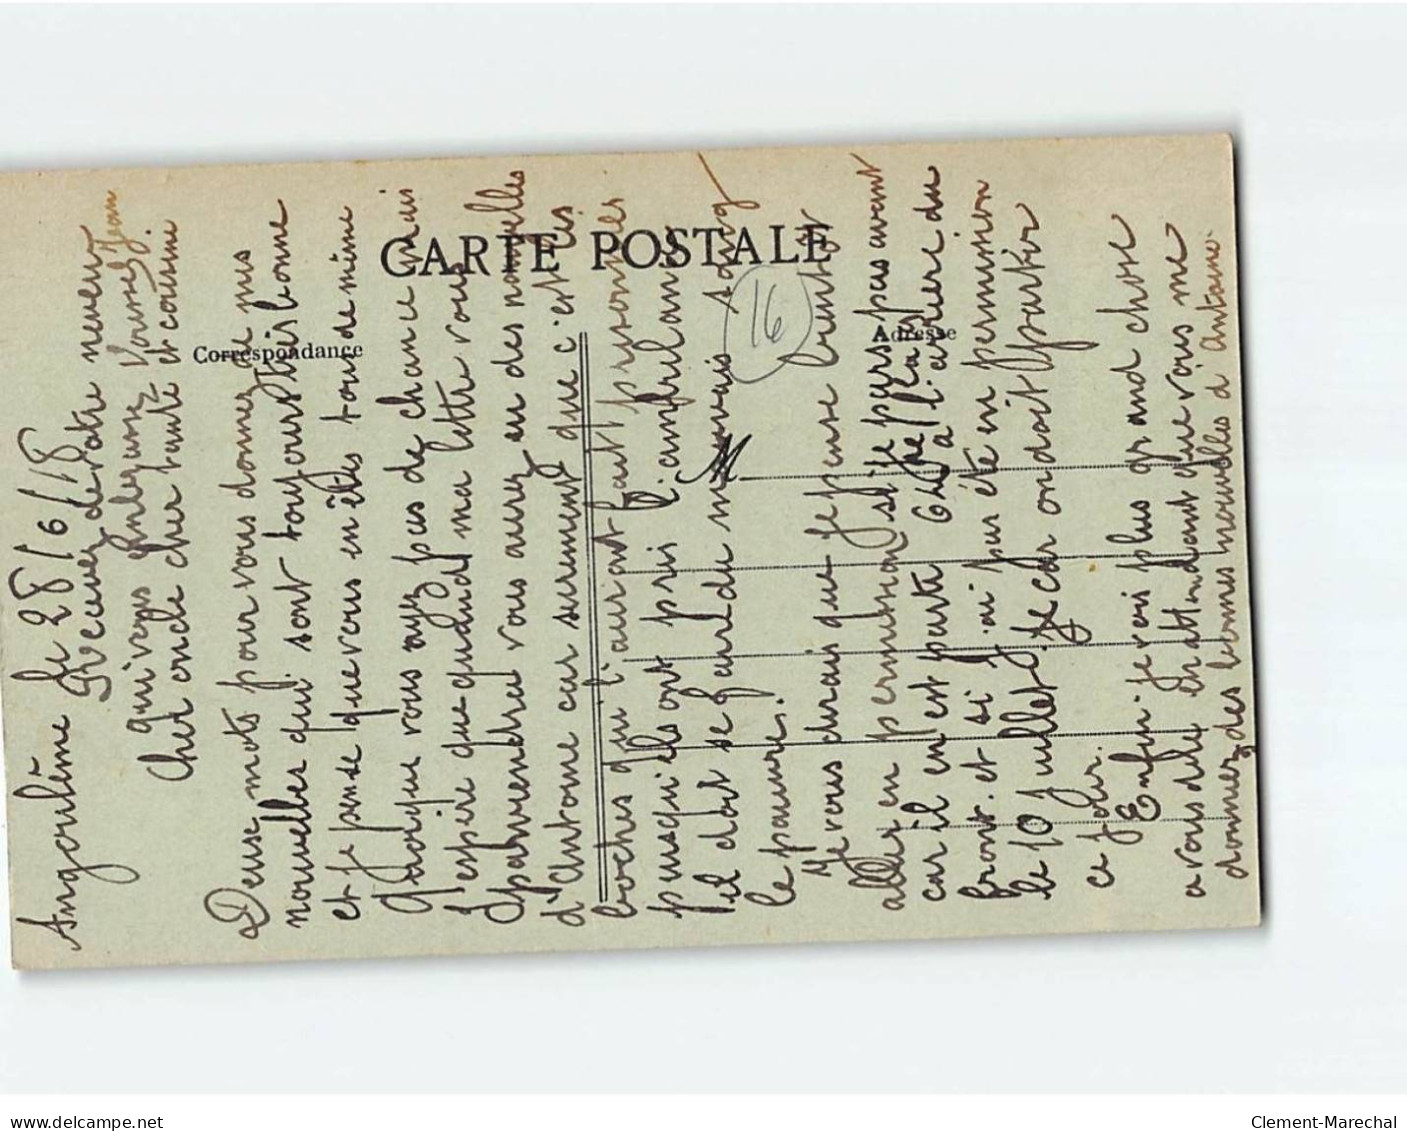 Angoulême le 28/6/18
Recevez de votre neveu
qui vous embrasse Vourvez Jean
Cher oncle cher tante et cousine
Deux mots pour vous donnez de mes
nouvelles qui sont toujours très bonne
et je pense que vous en êtes tout de même
Quoique vous ayez pas de chance mais
j'espère que quand ma lettre vous
parviendra vous aurez eu des nouvelles
d'Antoine car surement que c'est les
boches qui l'auront fait prisonniers
puisqu'ils ont pris l'ambulance
il doit se faire du mauvais sang
le pauvre.
Je vous dirais que je pense bientot
aller en permission si je pars pas avant
car il en est parte
front. et si j'ai pas été en permission
le 10 juillet je car on doit partir
ce jour.
Enfin je vois plus grand chose
a vous dire en attendant que vous me
donnez des bonnes nouvelles d'Antoine.
CARTE POSTALE
Correspondance
Adresse
M
16
www.delcampe.net
Clement-Marechal